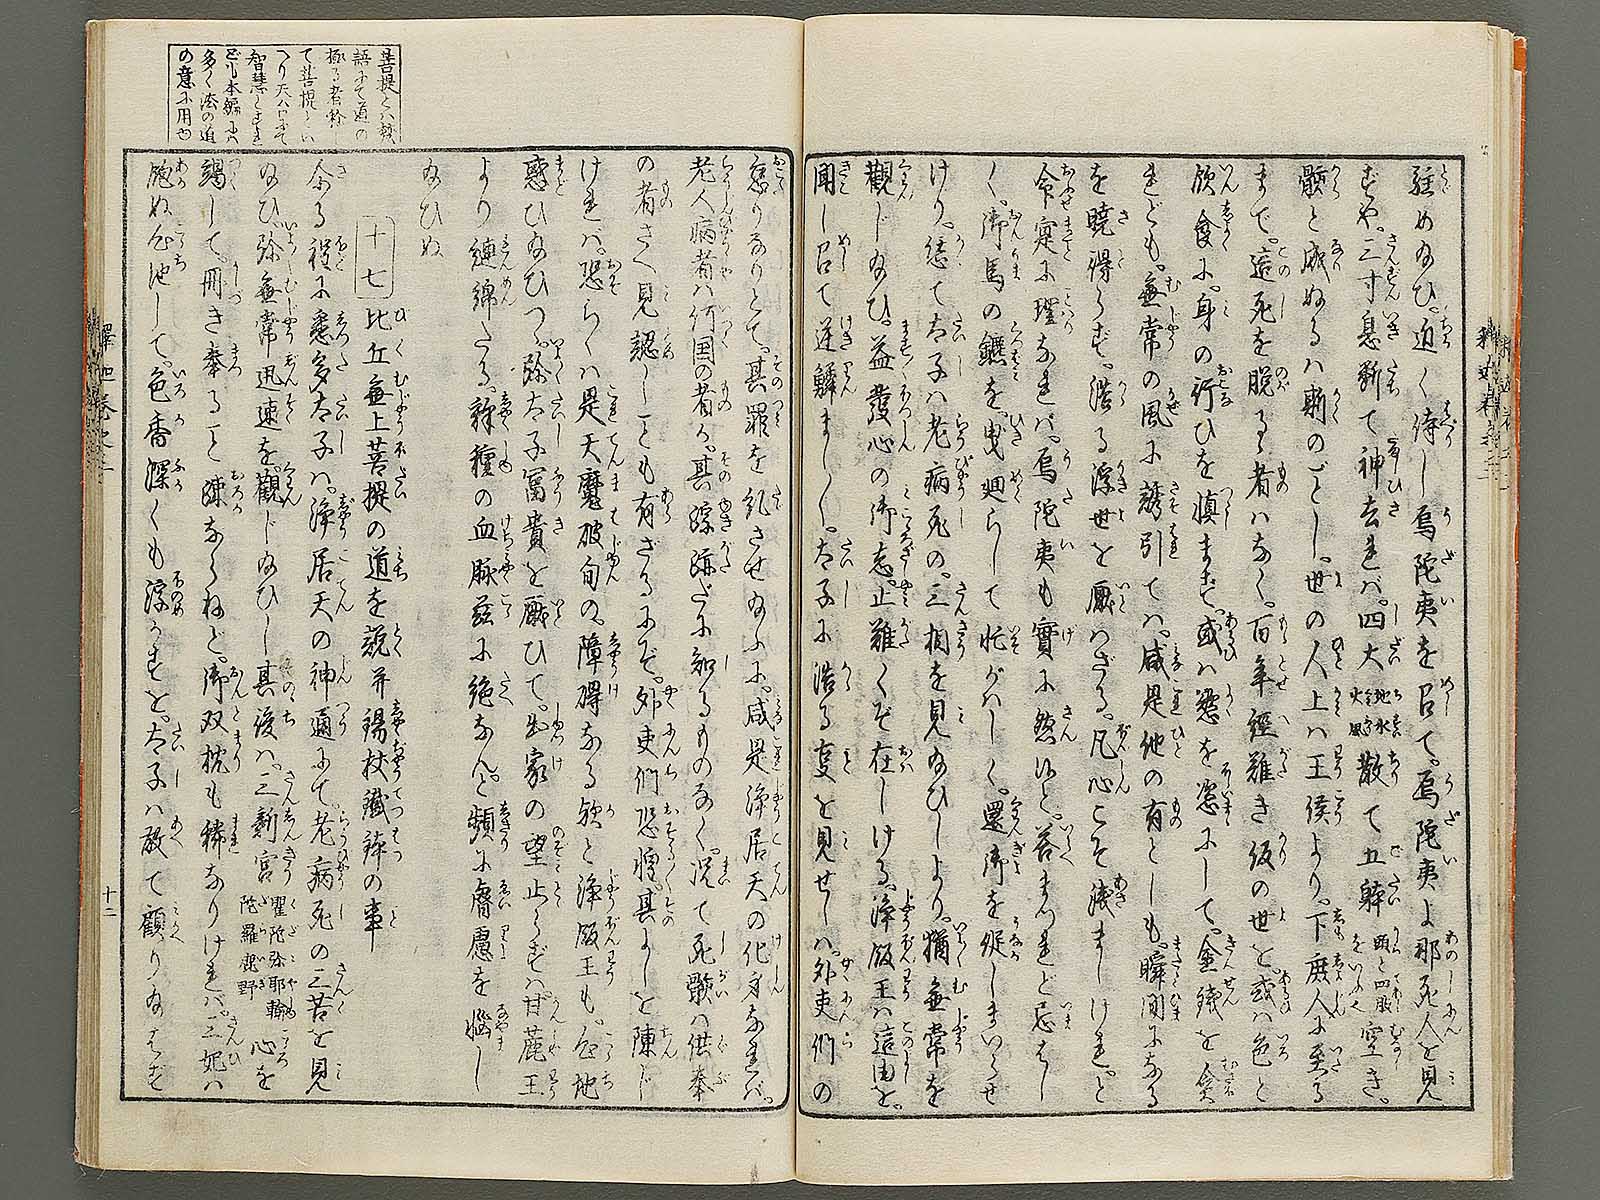 駐めたまひ。近く侍し烏陀夷を召て。烏陀夷よ那死人を見
ずや。三寸息斬て神去れば。四大地水火風散て五躰頭と四肢をいふ空き。
骸と成ぬるハ斯のごとし。世の人上ハ王侯より。下庶人に至る
まで。這死を脱るゝ者ハなく。百年經難き仮の世を。或ハ色と
飲食に。身の行ひを慎まず。或ハ慾を恣にして。金銭を貪
れども。無常の風に誘引てハ。咸是他の有としも。瞬間になる
を曉得らず。浩る浮世を厭ハざる。凡心こそ浅ましけれ。と
命寔に理なれバ。烏陀夷も實に然なりと。答まつれど忌はし
く。御馬の鑣を。曳廻らして忙がハしく。還御を促しまいらせ
けり。恁て太子ハ老病死の。三相を見たまひしより。猶無常を
觀じたまひ。益發心の御志。止難くぞ在しける。浄飯王ハ這由を。
聞し召て逆鱗ましまし。太子に浩る支を見せしハ。外吏們の
怠りなりとて。其罪を糺させたまふに。咸是浄居天の化身なれバ。
老人病者ハ何国の者か。其踪跡だに知るものなく。况て死骸ハ供奉
の者さへ見認しことも有ざるにぞ。外吏們恐惶其よしを陳じ
けれバ。恐らくハ是天魔破旬の。障碍なる欤と浄飯王も。心地
惑ひたまひつゝ。弥太子富貴を厭ひて。出家の望止らずハ甘蔗王
より連綿たる。刹種の血脉茲に絶なんと。頻に膚慮を悩し
たまひぬ
十七 比丘無上菩提の道を説并錫杖鐵鉢の事
余る程に悉多太子ハ。浄居天の神通にて。老病死の三苦を見
たまひ。弥無常迅速を。觀じたまひし其後ハ。三新宮瞿陀弥耶輸陀羅鹿野心を
竭して。冊き奉ること疎ならねど。御双枕も稀なりけれバ。三妃ハ
飽ぬ心地して。色香深くも浮かすを。太子ハ敢て顧りたまはず
菩提とハ梵
語にて道の
極る者を称
て菩提とい
へり天八口にて
智慧と見れ
ども本編にハ
多く法の道
の意に用ゆ
釋迦巻之二
十二